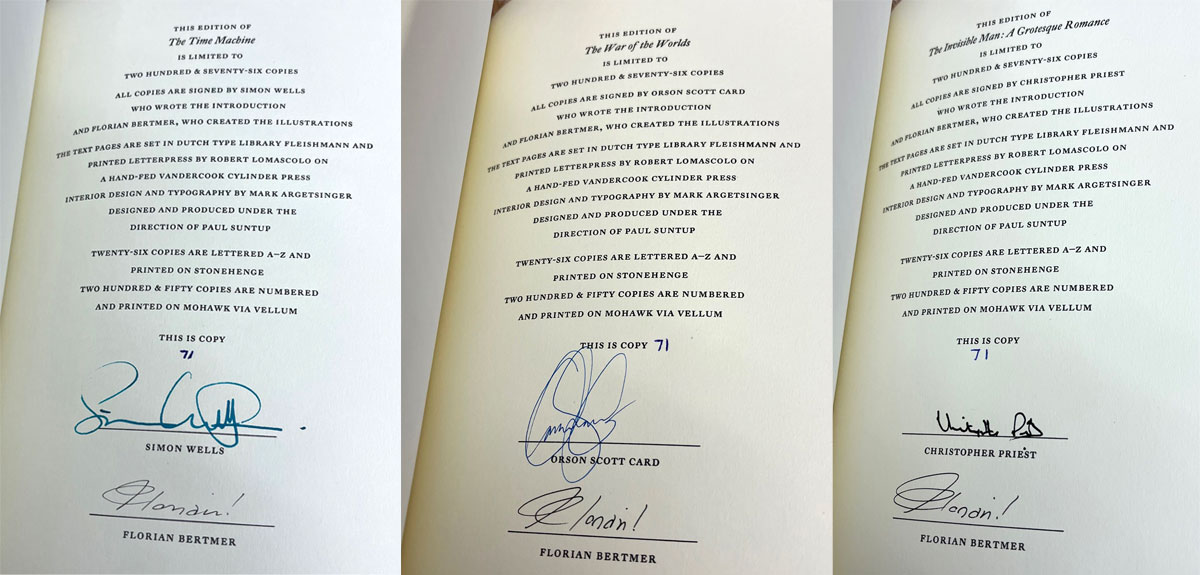 THIS EDITION OF
The Time Machine
IS LIMITED TO
TWO HUNDRED & SEVENTY-SIX COPIES
ALL COPIES ARE SIGNED BY SIMON WELLS
WHO WROTE THE INTRODUCTION
AND FLORIAN BERTMER, WHO CREATED THE ILLUSTRATIONS
THE TEXT PAGES ARE SET IN DUTCH TYPE LIBRARY FLEISHMANN AND
PRINTED LETTERPRESS BY ROBERT LOMASCOLO ON
A HAND-FED VANDERCOOK CYLINDER PRESS
INTERIOR DESIGN AND TYPOGRAPHY BY MARK ARGETSINGER
DESIGNED AND PRODUCED UNDER THE
DIRECTION OF PAUL SUNTUP
TWENTY-SIX COPIES ARE LETTERED A–Z AND
PRINTED ON STONEHENGE
TWO HUNDRED & FIFTY COPIES ARE NUMBERED
AND PRINTED ON MOHAWK VIA VELLUM
THIS IS COPY
71
SIMON WELLS
Florian!
FLORIAN BERTMER
THIS EDITION OF
The War of the Worlds
IS LIMITED TO
TWO HUNDRED & SEVENTY-SIX COPIES
ALL COPIES ARE SIGNED BY ORSON SCOTT CARD
WHO WROTE THE INTRODUCTION
AND FLORIAN BERTMER, WHO CREATED THE ILLUSTRATIONS
THE TEXT PAGES ARE SET IN DUTCH TYPE LIBRARY FLEISHMANN AND
PRINTED LETTERPRESS BY ROBERT LOMASCOLO ON
A HAND-FED VANDERCOOK CYLINDER PRESS
INTERIOR DESIGN AND TYPOGRAPHY BY MARK ARGETSINGER
DESIGNED AND PRODUCED UNDER THE
DIRECTION OF PAUL SUNTUP
TWENTY-SIX COPIES ARE LETTERED A–Z AND
PRINTED ON STONEHENGE
TWO HUNDRED & FIFTY COPIES ARE NUMBERED
AND PRINTED ON MOHAWK VIA VELLUM
THIS IS COPY 71
ORSON SCOTT CARD
Florian!
FLORIAN BERTMER
THIS EDITION OF
The Invisible Man: A Grotesque Romance
IS LIMITED TO
TWO HUNDRED & SEVENTY-SIX COPIES
ALL COPIES ARE SIGNED BY CHRISTOPHER PRIEST
WHO WROTE THE INTRODUCTION
AND FLORIAN BERTMER, WHO CREATED THE ILLUSTRATIONS
THE TEXT PAGES ARE SET IN DUTCH TYPE LIBRARY FLEISHMANN AND
PRINTED LETTERPRESS BY ROBERT LOMASCOLO ON
A HAND-FED VANDERCOOK CYLINDER PRESS
INTERIOR DESIGN AND TYPOGRAPHY BY MARK ARGETSINGER
DESIGNED AND PRODUCED UNDER THE
DIRECTION OF PAUL SUNTUP
TWENTY-SIX COPIES ARE LETTERED A–Z AND
PRINTED ON STONEHENGE
TWO HUNDRED & FIFTY COPIES ARE NUMBERED
AND PRINTED ON MOHAWK VIA VELLUM
THIS IS COPY
71
CHRISTOPHER PRIEST
Florian!
FLORIAN BERTMER